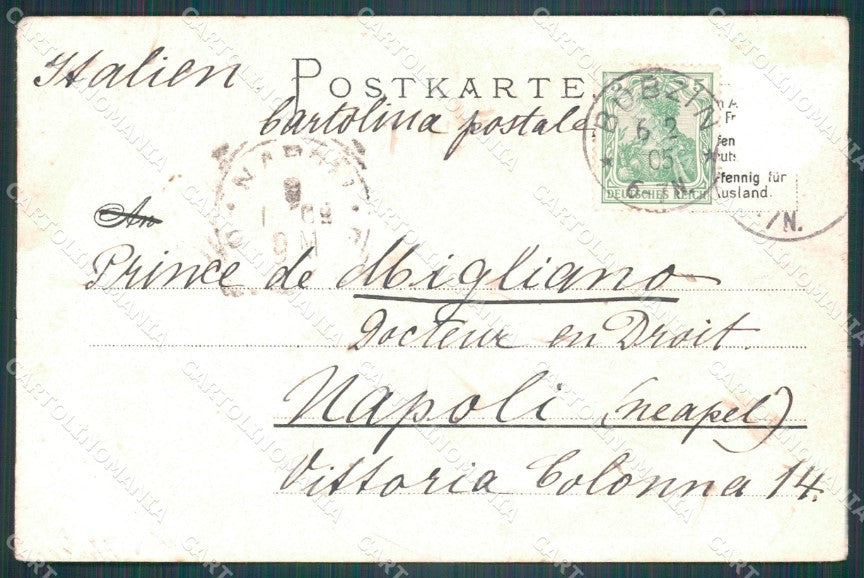 Italien
POSTKARTE
Cartolina postale
BOBZIN
6 2
05
DEUTSCHES REICH
fennig für
Ausland.
/N.
NAPOLI
9 M
An
Prince de Migliano
Docteur en Droit.
Napoli (Neapel)
Vittoria Colonna 14.
CARTOLINOMANIA